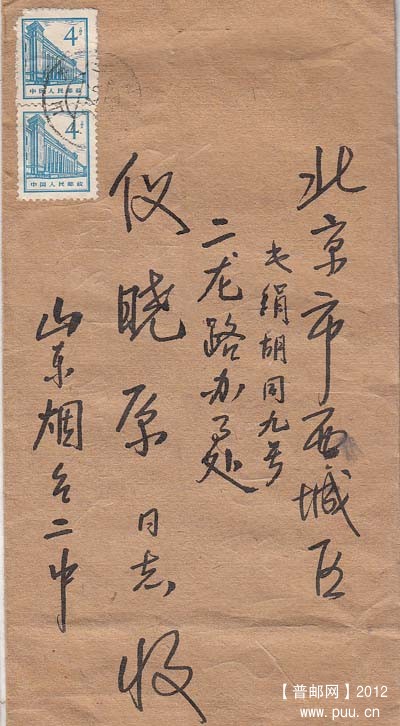 北京市西城区
大绢胡同九号
二龙路办事处
仪晓原同志收
山东烟台二中
4
中国人民邮政
4
中国人民邮政
【普邮网】2012
www.puu.cn